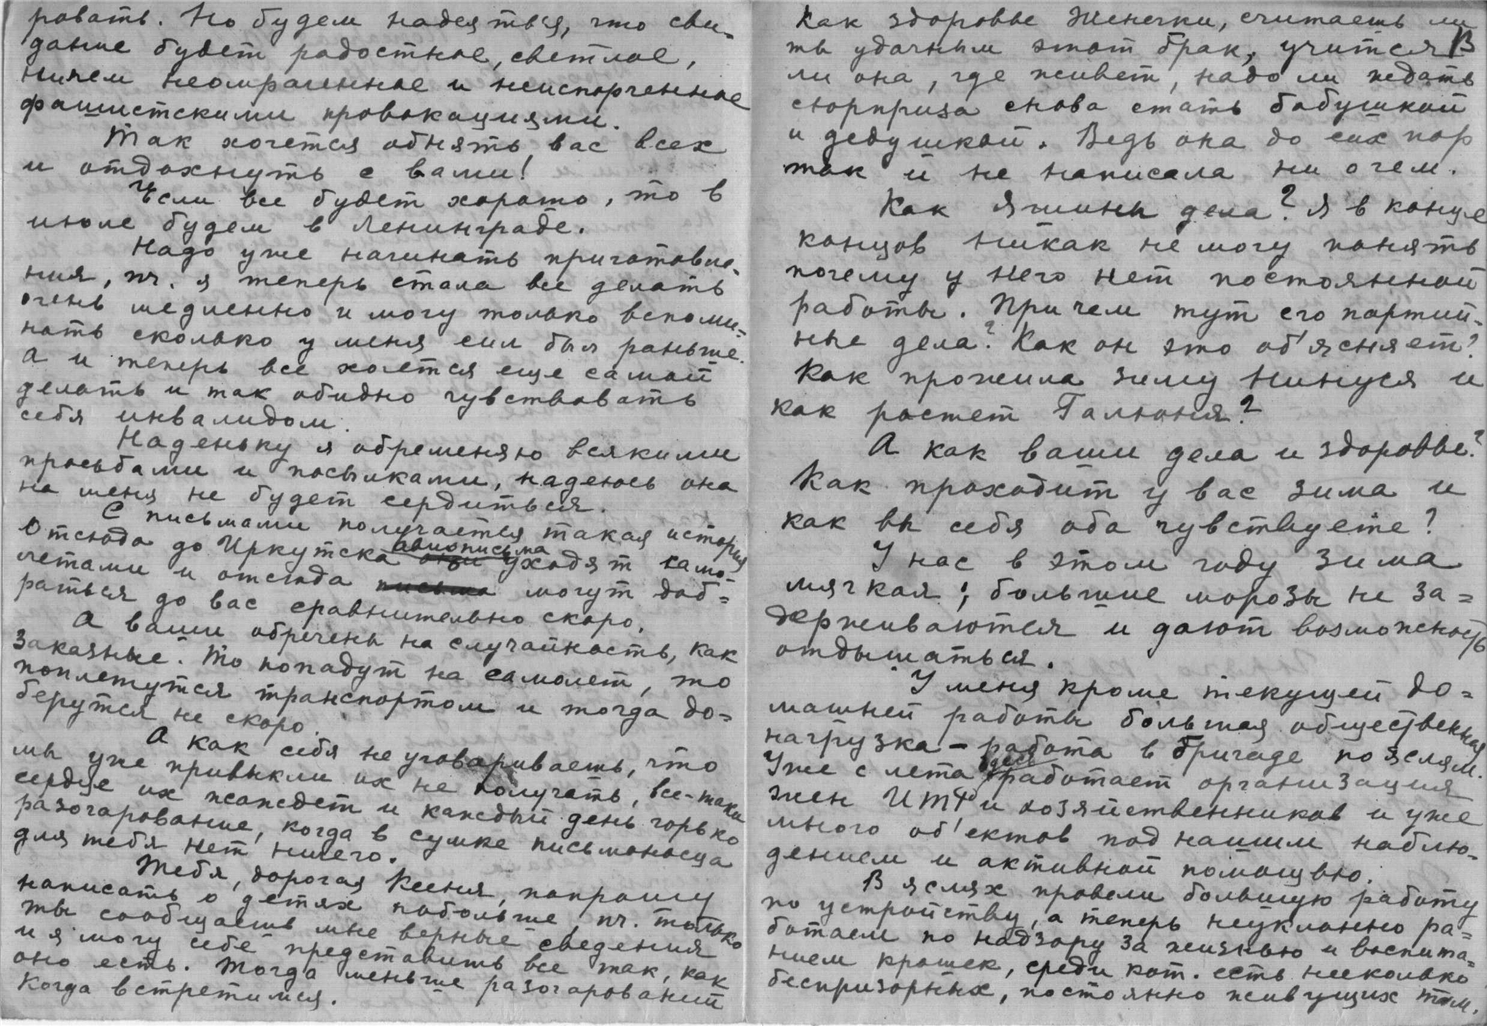 ровать. Но будем надеяться, что сви-
дание будет радостное, светлое,
ничем неомраченное и неиспорченное
фашистскими провокациями.
Так хочется обнять вас всех
и отдохнуть с вами!
Если все будет хорошо, то в
июле будем в Ленинграде.
Надо уже начинать приготовле-
ния, пч. я теперь стала все делать
очень медленно и могу только вспоми-
нать сколько у меня сил был раньше.
А и теперь все хочется еще самой
делать и так обидно чувствовать
себя инвалидом.
Наденьку я обременяю всякими
просьбами и посылками, надеюсь она
на меня не будет сердиться.
С письмами получается такая история
Отсюда до Иркутска авиописьма уходят само-
летами и отсюда письма могут доб=
раться до вас сравнительно скоро.
А ваши обречены на случайность, как
заказные. То попадут на самолет, то
поплетутся транспортом и тогда до=
берутся не скоро.
А как себя не уговариваешь, что
мы уже привыкли их не получать, все-таки
сердце их жаждет и каждый день горько
разочарование, когда в сумке письмоносца
для тебя нет ничего.
Тебя, дорогая Ксеня, попрошу
написать о детях побольше, пч. только
ты сообщаешь мне верные сведения
и я могу себе представить все так, как
оно есть. Тогда меньше разочарований
когда встретимся.
Как здоровье Женечки, считаешь ли
ты удачным этот брак, учится В
ли она, где живет, надо ли ждать
сюрприза снова стать бабушкой
и дедушкой. Ведь она до сих пор
так и не написала ни о чем.
Как Яшины дела? Я в конце
концов никак не могу понять
почему у него нет постоянной
работы. Причем тут его партий-
ные дела? Как он это об'ясняет?
Как прожила зиму Нинуся и
как растет Галюня?
А как ваши дела и здоровье?
Как проходит у вас зима и
как вы себя оба чувствуете?
У нас в этом году зима
мягкая; большие морозы не за=
держиваются и дают возможность
отдышаться.
У меня кроме текущей до=
машней работы большая общественная
нагрузка – работа в бригаде по яслям.
Уже с лета здесь работает организация
жен ИТР и хозяйственников и уже
много об'ектов под нашим наблю-
дением и активной помощью.
В яслях провели большую работу
по устройству, а теперь неуклонно ра=
ботаем по надзору за жизнью и воспита=
нием крошек, среди кот. есть несколько
беспризорных, постоянно живущих там.